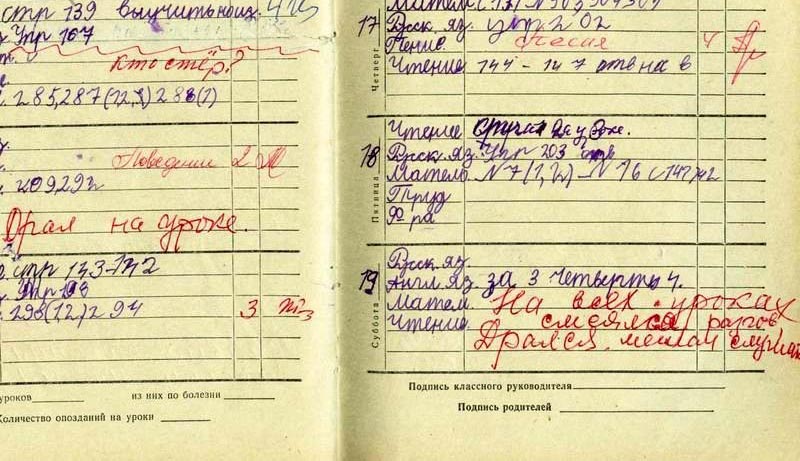 стр 139 выучить наиз.
Упр 167
Кто стёр?
285,287(12,3) 288(1)
Поведение 2
209,292
Орал на уроке.
стр 133-142
Упр 198
293(12) 294 3
уроков из них по болезни
Количество опозданий на уроки
17
Четверг
Русск яз. упр 202
Пение. Песня 4
Чтение 144 - 147 отв на в
18
Пятница
Чтение
Русск. яз. Упр 203
Матем. N 7(1,2) - N 16
Труд
Ф ра
19
Суббота
Русск. яз.
Англ. яз. за 3 четверть 4.
Матем. На всех уроках
Чтение смеялся, разгов
Дрался, мешал слушать
Подпись классного руководителя
Подпись родителей